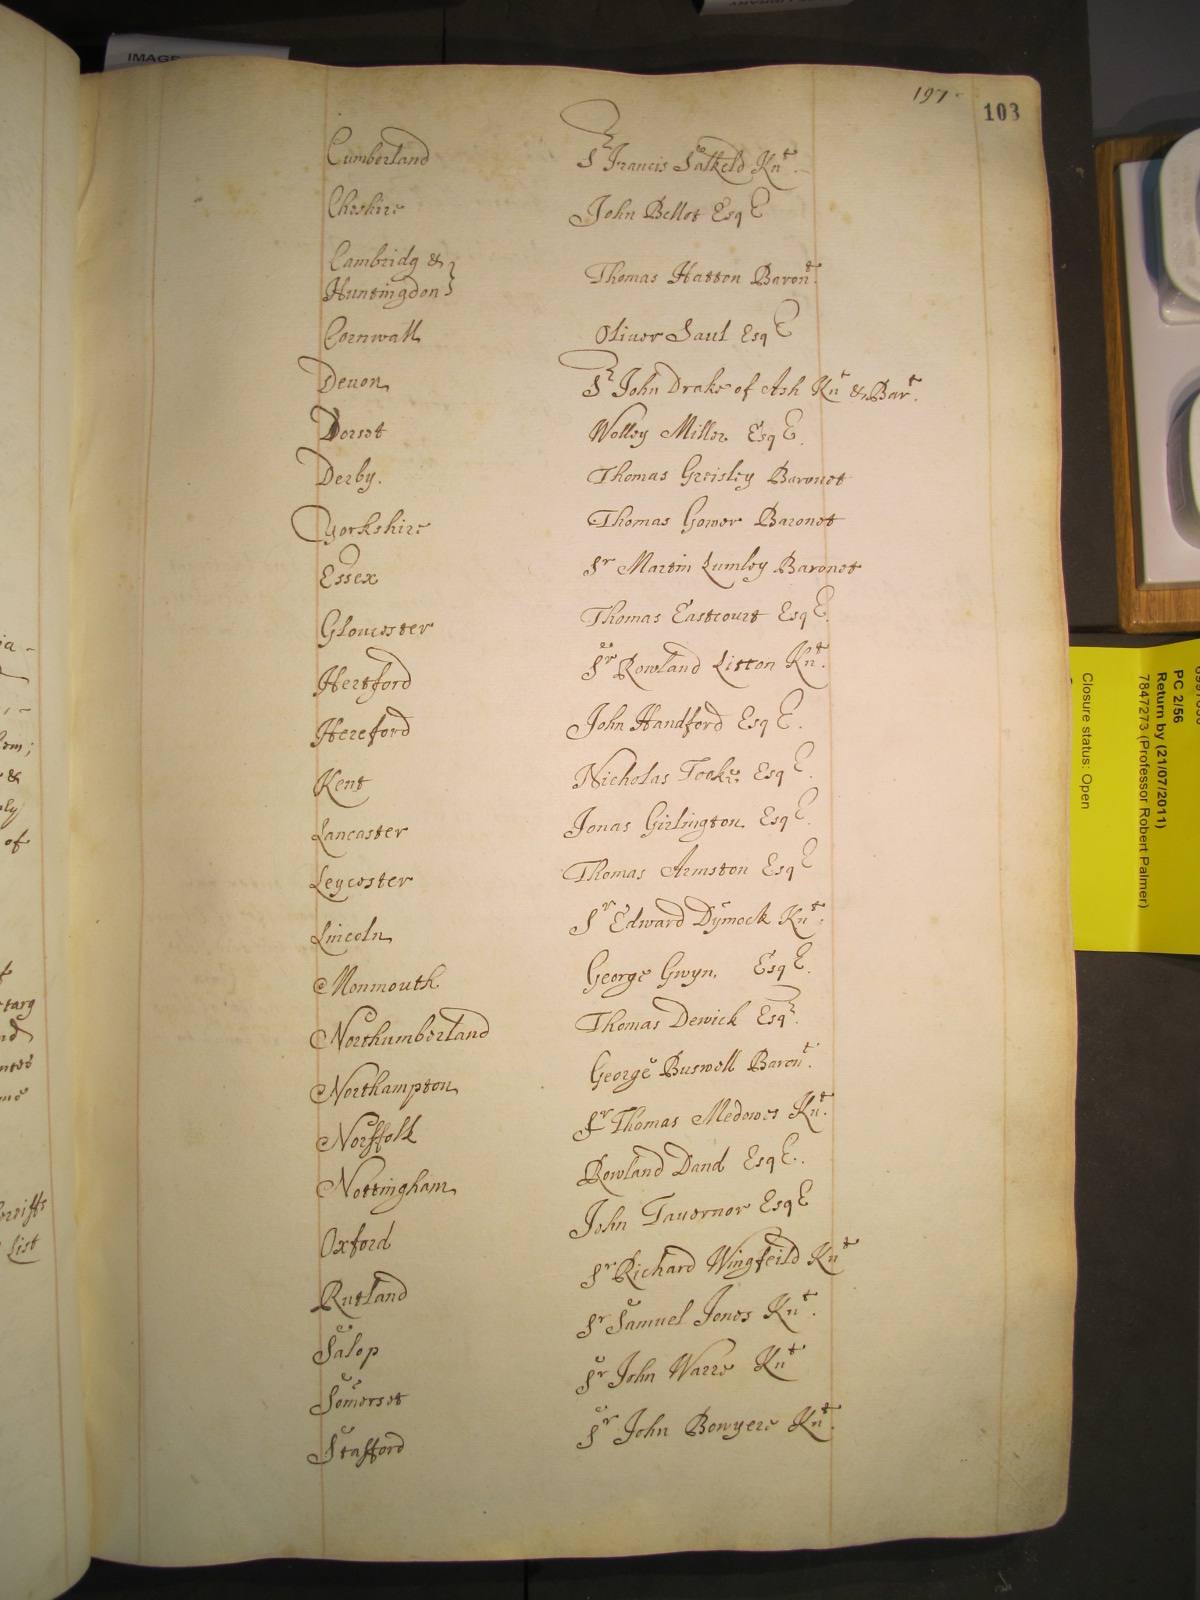 IMAGE
197
103
Cumberland Sr Francis Salkeld Knt
Cheshire John Bellot Esq
Cambridg &
Huntingdon } Thomas Hatton Baront.
Cornwall Oliver Saul Esq
Devon Sr John Drake of Ash Knt & Bart.
Dorset Wolley Miller Esq.
Derby. Thomas Greisley Baronet
Yorkshire Thomas Gower Baronet
Essex Sr Martin Lumley Baronet
Gloucester Thomas Eastcourt Esq.
Hertford Sr Rowland Litton Knt.
Hereford John Handford Esq.
Kent Nicholas Tooke Esq.
Lancaster Jonas Girlington Esq.
Leycester Thomas Armston Esq
Lincoln Sr Edward Dymock Knt.
Monmouth George Gwyn. Esq.
Northumberland Thomas Dewick Esqr.
Northampton George Buswell Baront.
Norffolk Sr Thomas Medowes Knt.
Nottingham Rowland Dand Esq.
Oxford John Tavernor Esq
Rutland Sr Richard Wingfeild Knt
Salop Sr Samuel Jones Knt.
Somerset Sr John Warre Knt
Stafford Sr John Bowyere Knt.
of
List
PC 2/56
Return by (21/07/2011)
7847273 (Professor Robert Palmer)
Closure status: Open